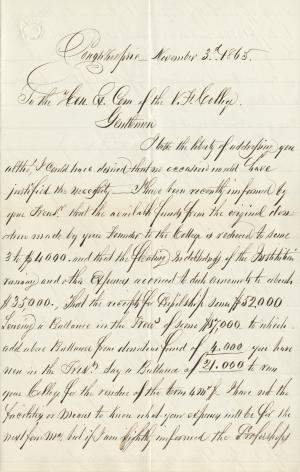 Poughkeepsie November 3d 1865.
To the Hon. Ex. Com of the V. F. College.
Gentlemen
I take the liberty of addressing you
altho' I could have desired that no occasion would have
justified the necessity — I have been recently informed by
your Treasr. that the available funds from the original dona
tion made by your Founder to the College is reduced to some
3 to $4000. and that the Indebtedness of the Institution
running and other expenses accrued to date amounts to about
$35000, That the receipts for Pupilship some $52000
Leaving a Ballance in the Treas of some $17000. to which
add above Ballance from donation fund of 4.000 you have
now in the Treasy say a Ballance of 21.000 to run
your College for the residue of the term I have not the
facility or Means to know what your expenses will be for the
next four mo, but if I am rightly informed the Professors